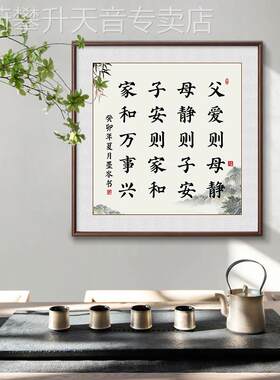 攀升天音专卖店
父爱则母静
母静则子安
子安则家和
家和万事兴
癸卯年夏月墨客书